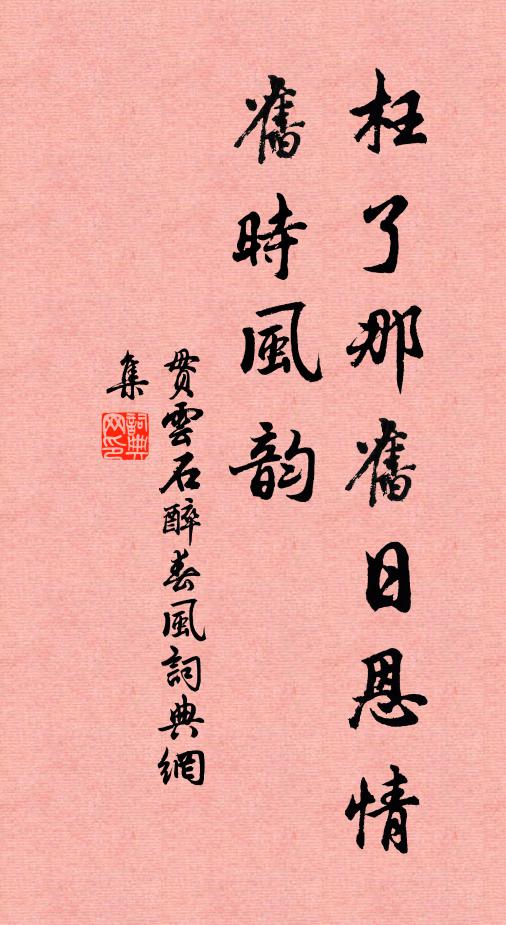 枉了那舊日恩情
舊時風韵
貫雲石醉春風詞典網
集
詞典
网印